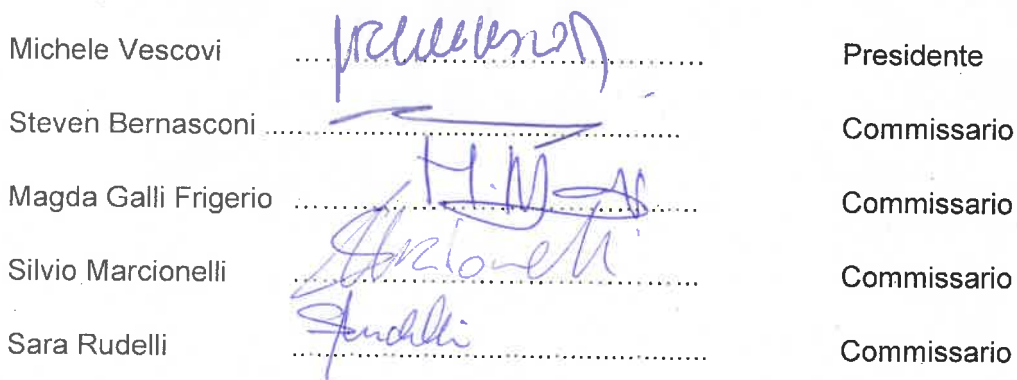 Michele Vescovi ........................................ Presidente
Steven Bernasconi ........................................ Commissario
Magda Galli Frigerio ........................................ Commissario
Silvio Marcionelli ........................................ Commissario
Sara Rudelli ........................................ Commissario